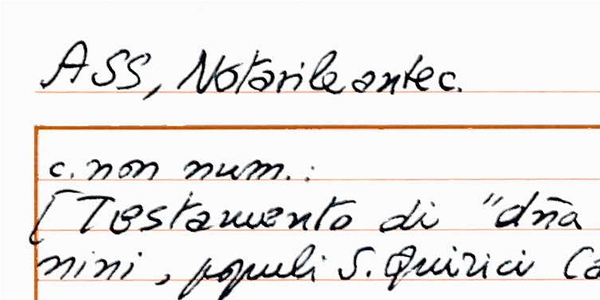 ASS, Notarile antec.
c. non num.:
[Testamento di "dña
nini, populi S. Quirici Ca